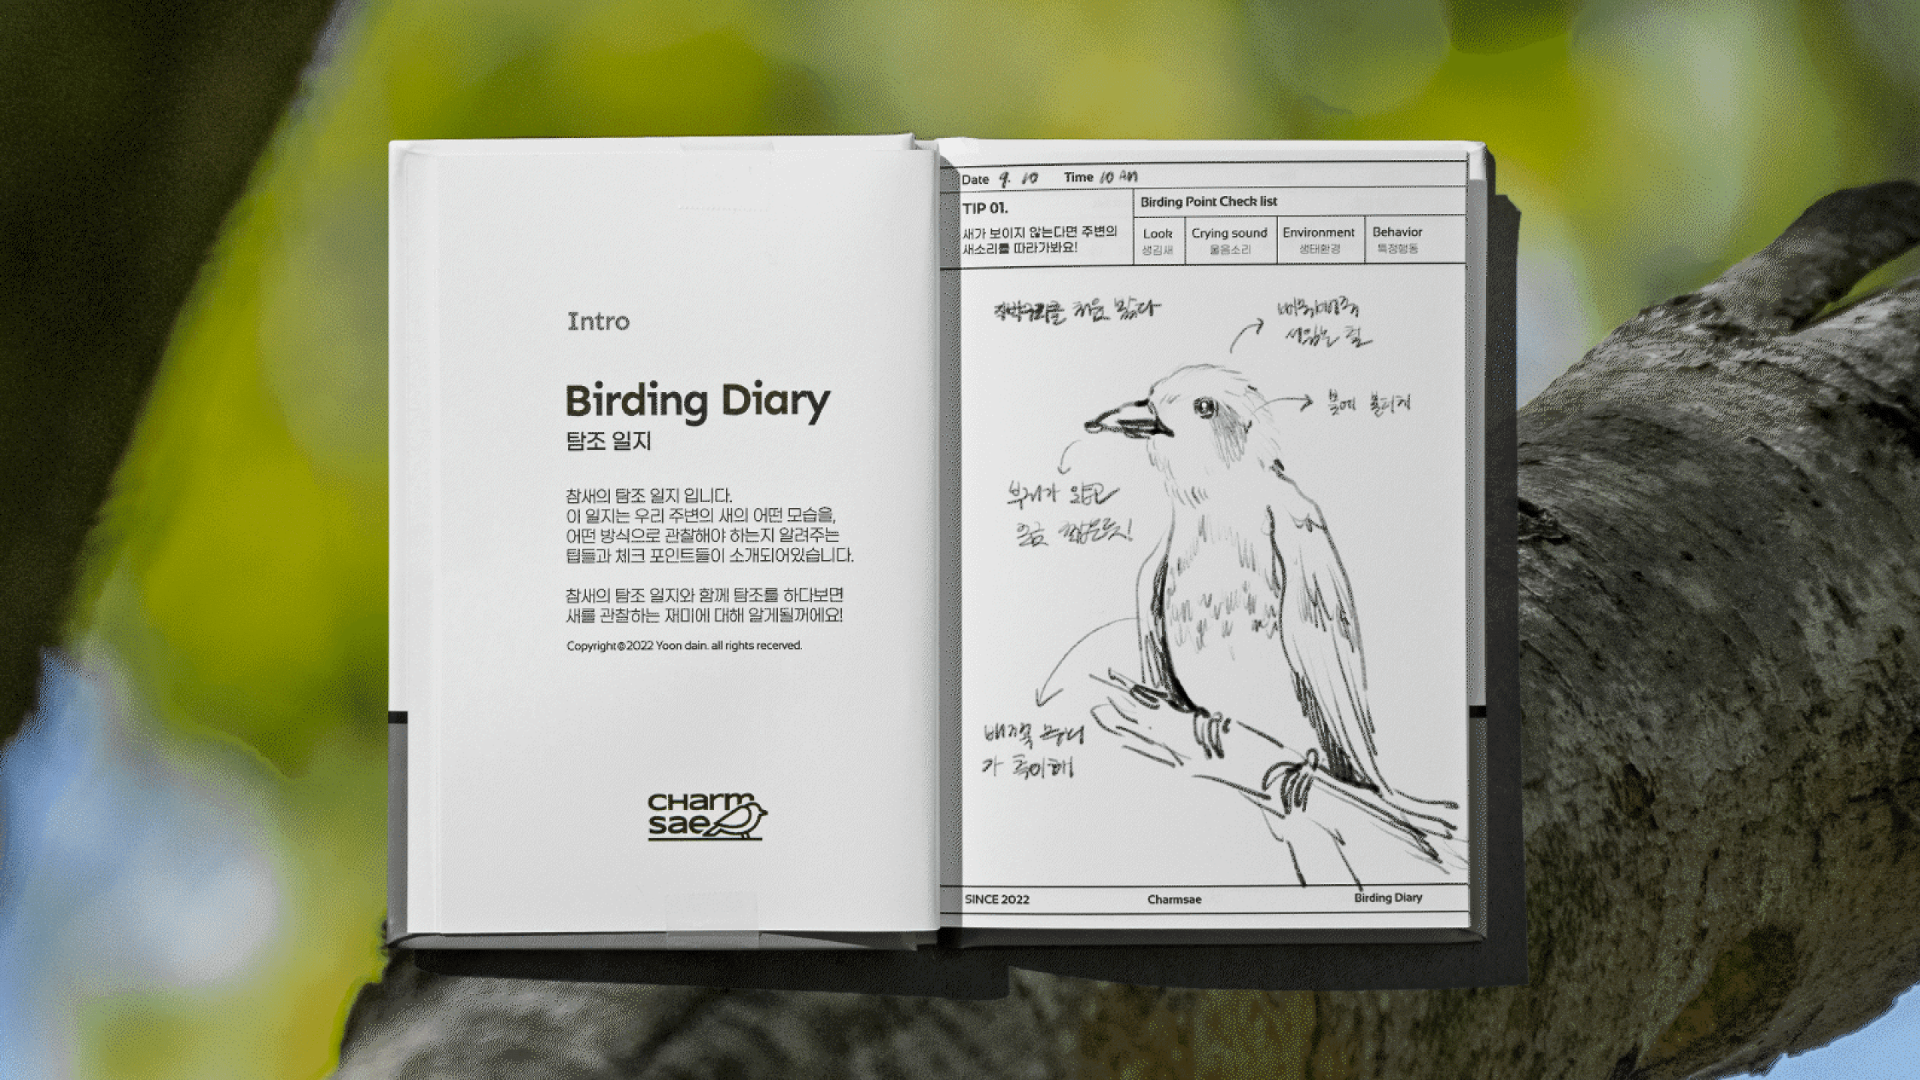 Intro
Birding Diary
탐조 일지
참새의 탐조 일지 입니다.
이 일지는 우리 주변의 새의 어떤 모습을,
어떤 방식으로 관찰해야 하는지 알려주는
팁들과 체크 포인트들이 소개되어있습니다.
참새의 탐조 일지와 함께 탐조를 하다보면
새를 관찰하는 재미에 대해 알게될꺼에요!
Copyright©2022 Yoon dain. all rights recerved.
CHarm
sae
Date 9. 10 Time 10 AM
TIP 01.
새가 보이지 않는다면 주변의
새소리를 따라가봐요!
Birding Point Check list
Look
생김새
Crying sound
울음소리
Environment
생태환경
Behavior
특정행동
직박구리를 처음 봤다
삐죽빼죽
서있는 털
볼터치
부리가 얇고
조금 짧은듯!
배쪽 무늬
가 특이해
SINCE 2022
Charmsae
Birding Diary